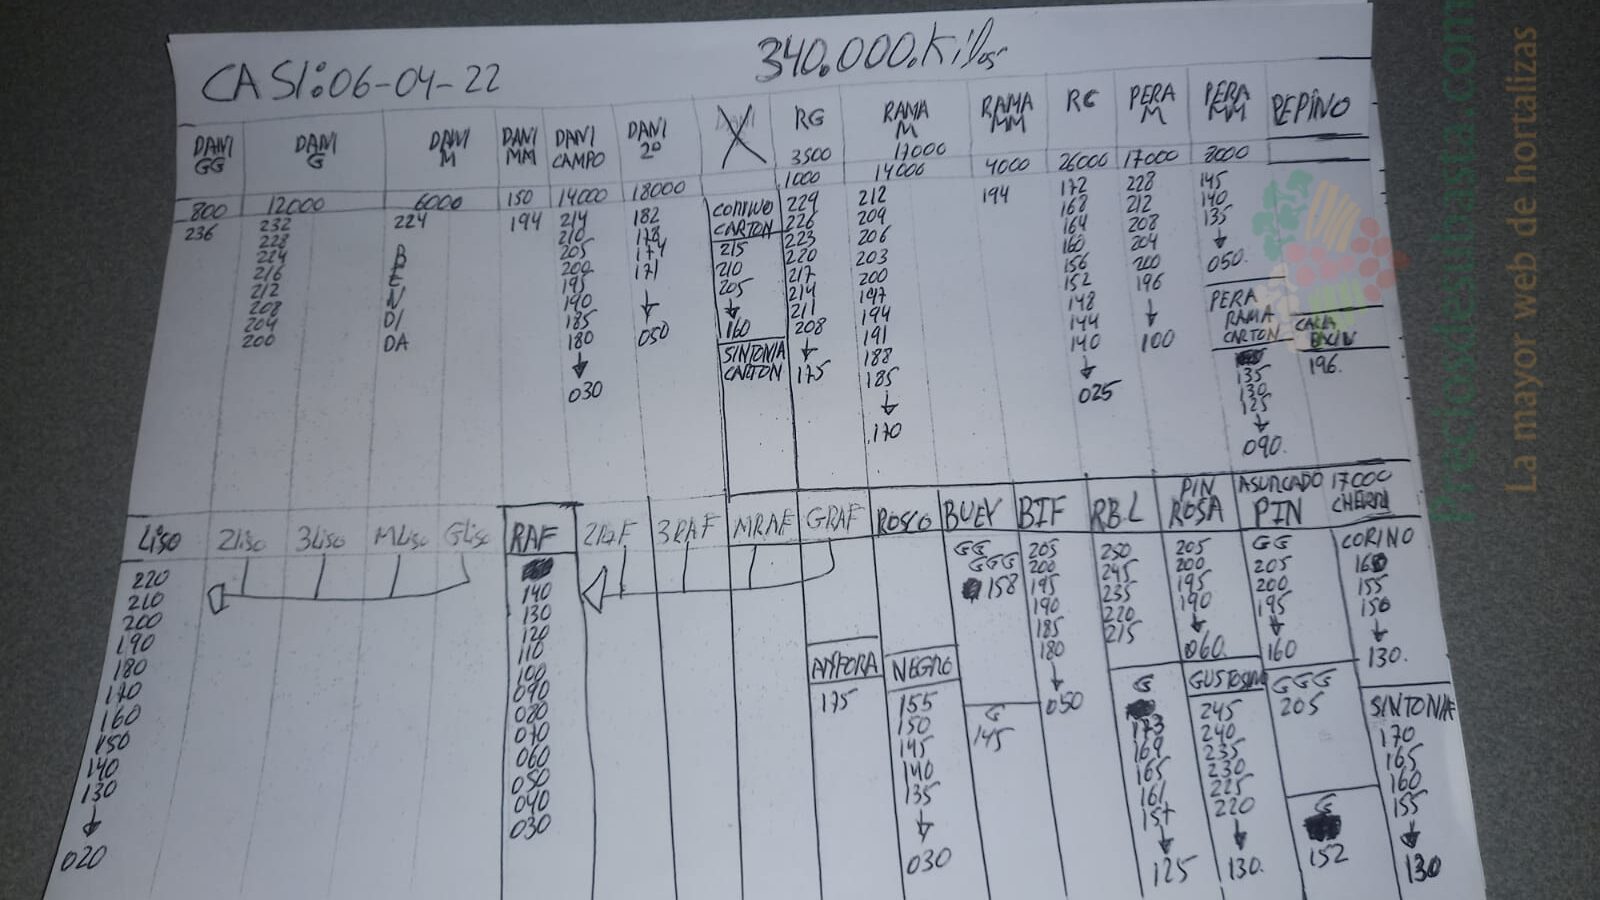 CASI:06-04-22
340.000.Kilos
DANI GG
800
236
DANI G
12000
232
228
224
216
212
208
204
200
DANI M
6000
224
B
E
N
DI
DA
DANI MM
150
194
DANI CAMPO
14000
214
210
205
200
195
190
185
180
030
DANI 2º
18000
182
178
174
171
050
CORINO CARTON
215
210
205
160
SINTONIA CARTON
RG
3500
1000
229
226
223
220
217
214
211
208
175
RAMA M
17000
14000
212
209
206
203
200
197
194
191
188
185
170
RAMA MM
4000
194
RG
26000
172
168
164
160
156
152
148
144
140
025
PERA M
17000
228
212
208
204
200
196
100
PERA MM
8000
145
140
135
050.
PERA RAMA CARTON
135
130
125
090.
PEPINO
196.
LISO
220
210
200
190
180
170
160
150
140
130
020
2Liso
3Liso
MLiso
GLiso
RAF
140
130
120
110
100
090
080
070
060
050
040
030
2RAF
3RAF
MRAF
GRAF
ANFORA
175
ROSCO
NEGRO
155
150
145
140
135
030
BUEY
GG
GGG
158
G
145
BIF
205
200
195
190
185
180
050
RB.L
250
245
235
220
215
G
173
169
165
161
157
125
PIN ROSA
205
200
195
190
060.
GUSTOSINO
245
240
235
230
225
220
130.
ASURCADO PIN
GG
205
200
195
160
GGG
205
G
152
17000
CHERRY
CORINO
160
155
150
130.
SINTONIA
170
165
160
155
130
Preciosdesubasta.com
La mayor web de hortalizas